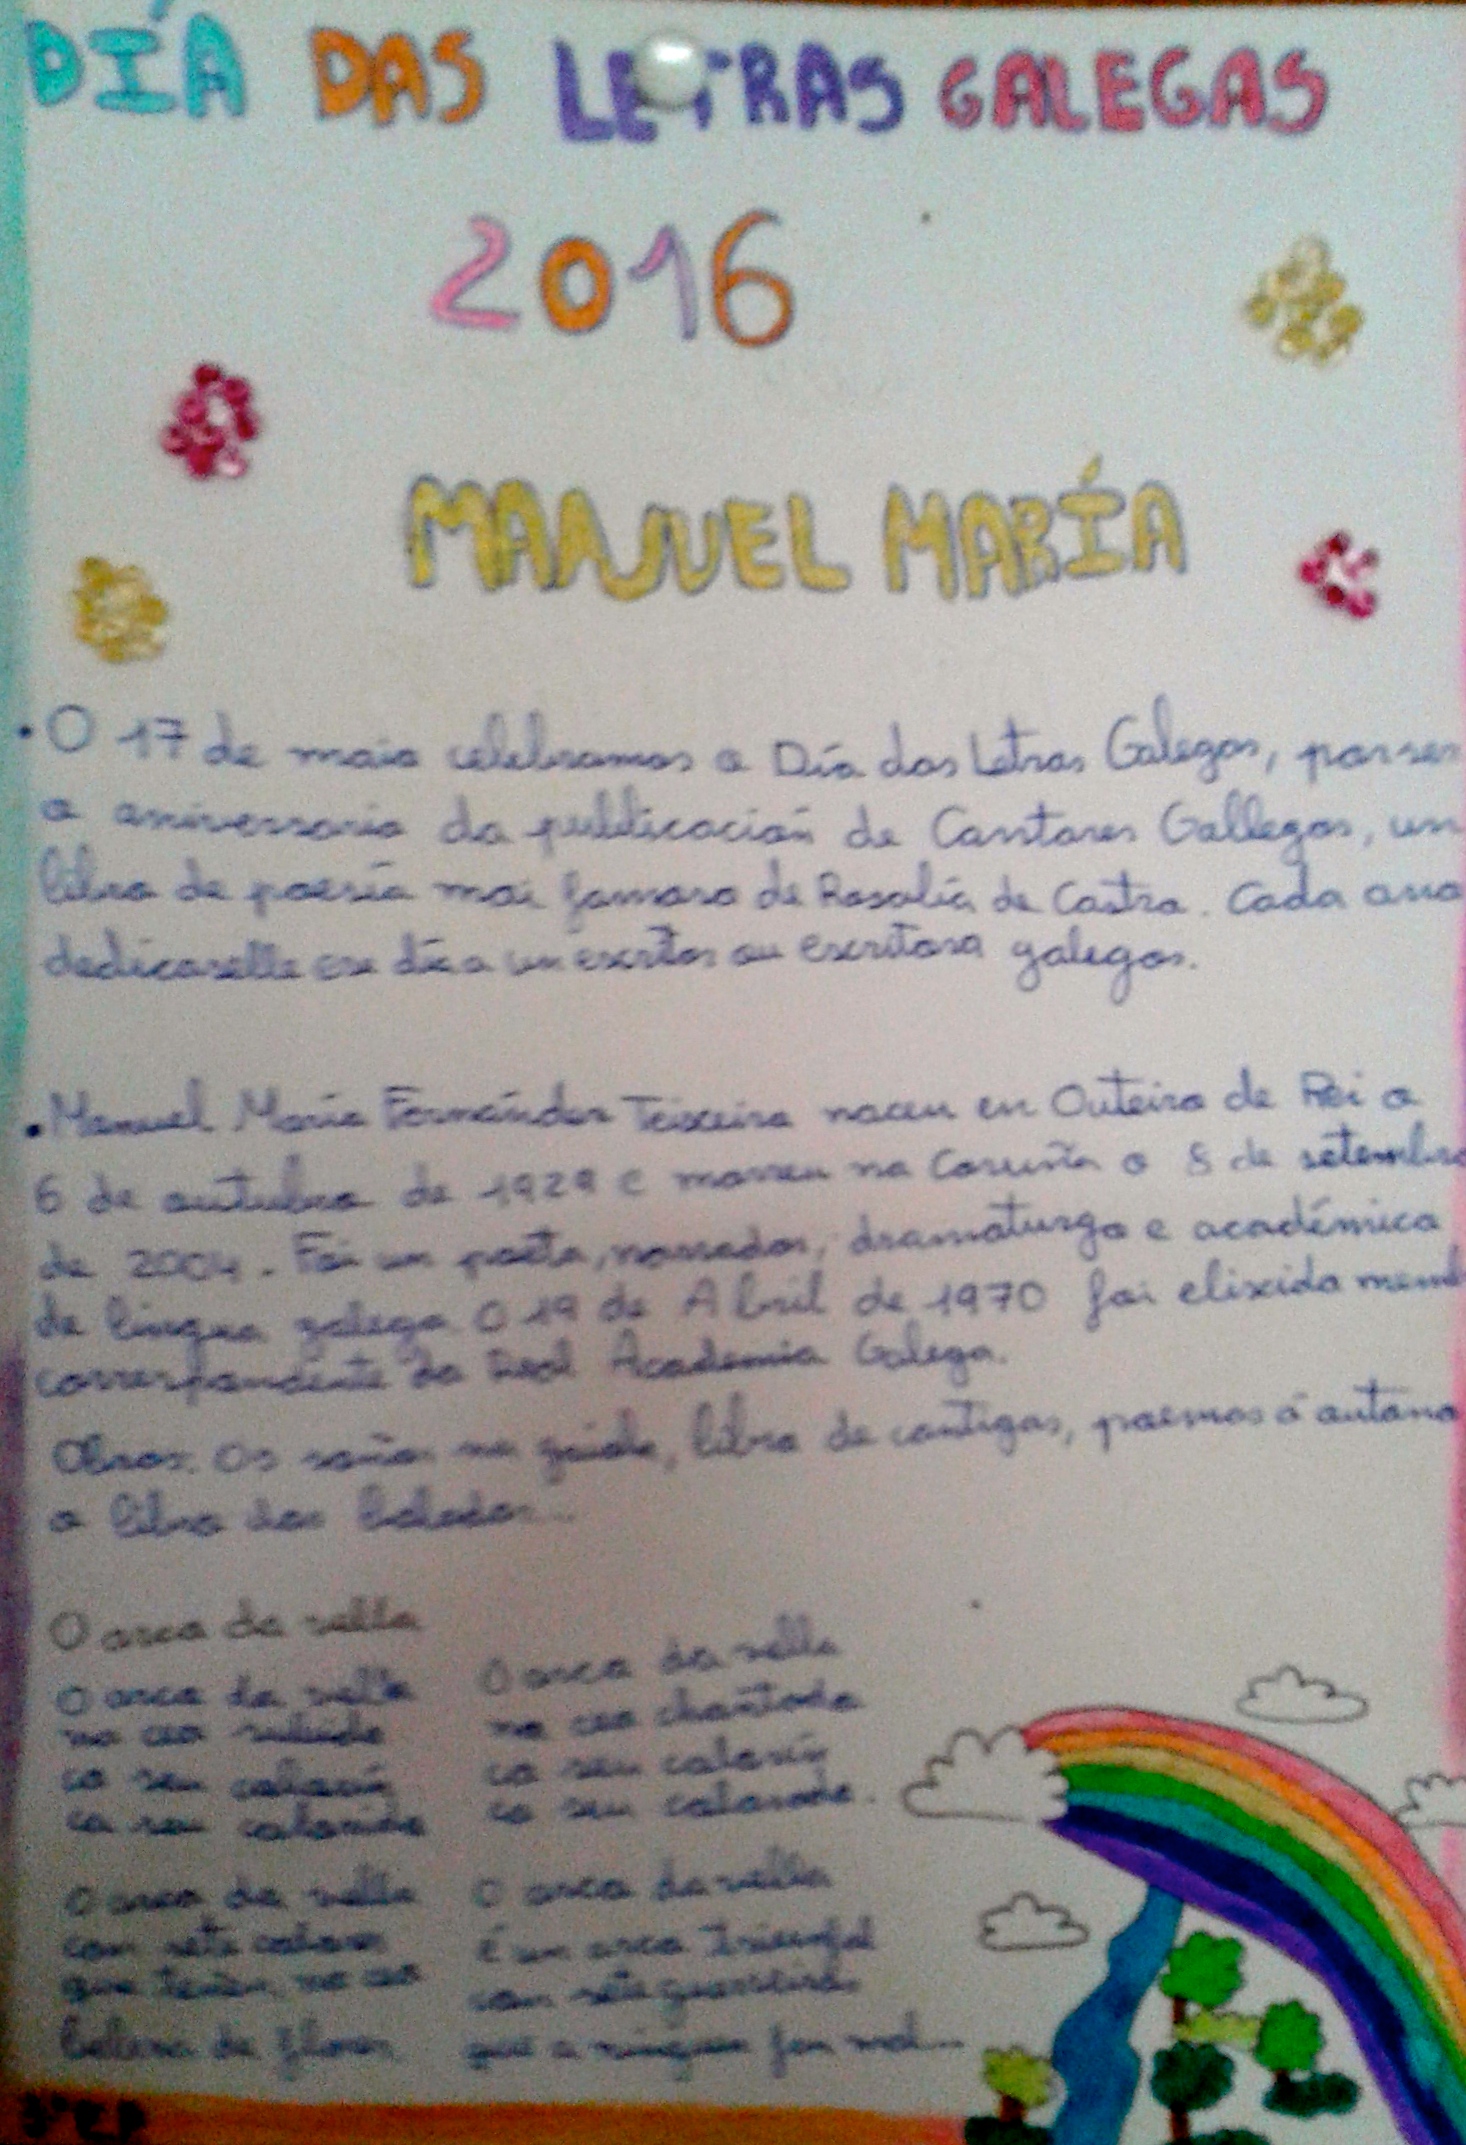 DÍA DAS LETRAS GALEGAS
2016
MANUEL MARÍA
• O 17 de maio celebramos o Día das Letras Galegas, por ser
o aniversario da publicación de Cantares Gallegos, un
libro de poesía moi famoso de Rosalía de Castro. Cada ano
dedícaselle ese día a un escritor ou escritora galegos.
• Manuel María Fernández Teixeiro naceu en Outeiro de Rei o
6 de outubro de 1929 e morreu na Coruña o 8 de setembro
de 2004. Foi un poeta, narrador, dramaturgo e académico
de lingua galega. O 19 de Abril de 1970 foi elixido memb
correspondente da Real Academia Galega.
Obras: Os soños na gaiola, libro de cantigas, poemas ó outono
o libro das baladas...
O arco da vella
O arco da vella
no ceo subido
co seu colorín
co seu colorido
O arco da vella
con sete colores
que teñen no ceo
beleza de flores
O arco da vella
no ceo chantado
co seu colorín
co seu colorado.
O arco da vella
é un arco triunfal
con sete guerreiros
que a ninguén fan mal...
3º E.P